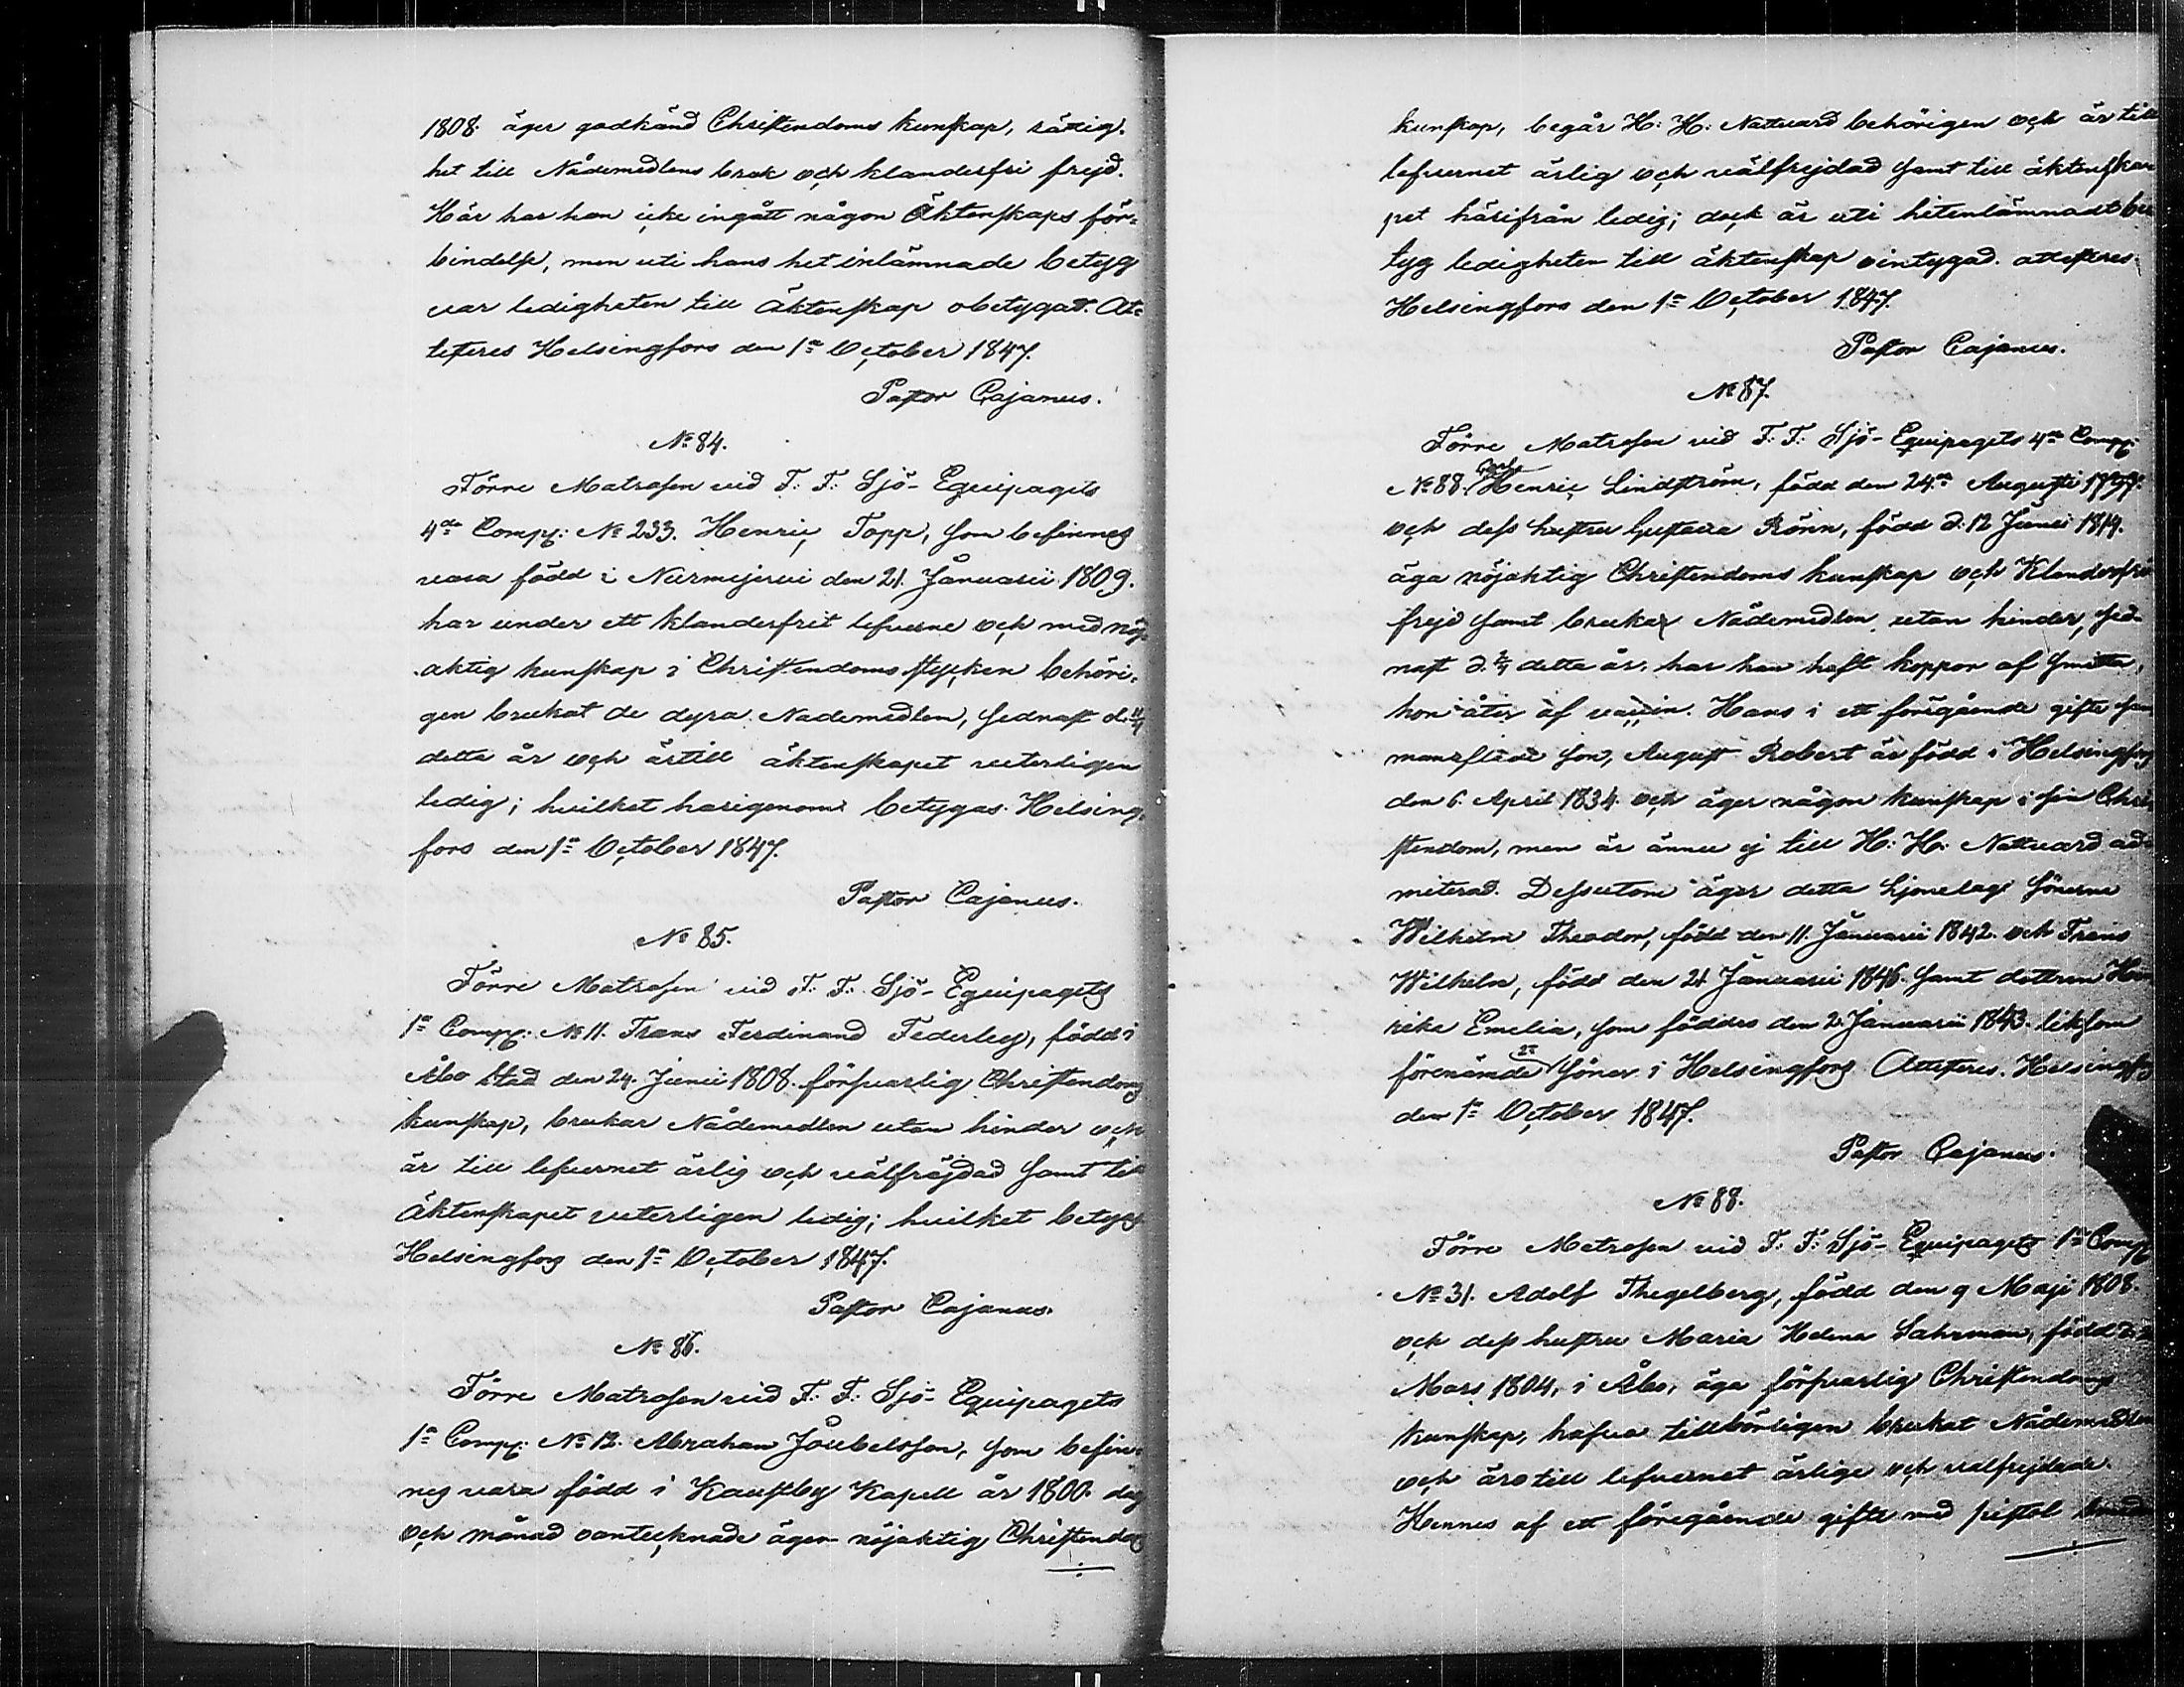 1808. äger godkänd Christendoms kunskap, rättig-
het till Nådemedlens bruk och klanderfri frejd.
Här har han icke ingått någon Äktenskaps för-
bindelse, men uti hans hit inlämnade betyg
var ledigheten till äktenskap obetygad. At-
testeres Helsingfors den 1ª October 1847.
Pastor Cajanus.
Nº 84.
Förre Matrosen vid F: F: Sjö-Equipagets
4de Comp: Nº 233. Henric Topp, som befinnes
vara född i Nurmijervi den 21. Januarii 1809.
har under ett klanderfrit lefverne och med nöj-
aktig kunskap i Christendoms stycken behöri-
gen brukat de dyra Nademedlen, sednast d.
detta år och är till äktenskapet veterligen
ledig; hvilket härigenom betygas. Helsing-
fors den 1ª October 1847.
Pastor Cajanus.
Nº 85.
Förre Matrosen vid F: F: Sjö-Equipagets
1ª Comp: Nº 11. Frans Ferdinand Federley, född i
Åbo Stad den 24. Junii 1808. försvarlig Christendoms
kunskap, brukar Nådemedlen utan hinder och
är till lefvernet ärlig och välfräjdad samt till
Äktenskapet veterligen ledig; hvilket betygas
Helsingfors den 1ª October 1847.
Pastor Cajanus.
Nº 86.
Förre Matrosen vid F: F: Sjö-Equipagets
1ª Comp: Nº 12. Abraham Joubelsson, som befin-
nes vara född i Kaustby Kapell år 1800. dag
och månad oantecknade äger nöjaktig Christendoms
kunskap, begår H: H: Nattvard behörigen och är till
lefvernet ärlig och välfrejdad samt till äktenska-
pet härifrån ledig; dock är uti hitenlämnadt be-
tyg ledigheten till äktenskap ointygad. attesteres
Helsingfors den 1ª October 1847.
Pastor Cajanus.
Nº 87.
Förre Matrosen vid F: F: Sjö-Equipagets 4de Comp:
Nº 88. Carl Henric Lindström, född den 24de Augusti
och dess hustru Gustava Rönn, född d: 12 Junii 1814.
äga nöjaktig Christendoms kunskap och Klanderfri
frejd samt brukar Nådemedlen utan hinder, sed-
nast d. detta år. har han haft koppor af smitta,
hon åter af vaccin. Hans i ett föregående gifte sam-
mansflade son, August Robert är född i Helsingfors
den 6. April 1834. och äger någon kunskap i sin Chri-
stendom, men är ännu ej till H: H: Nattvard ad-
miterad. Dessutom äger detta hjonelag Sönerne
Wilhelm Theodor, född den 11. Januarii 1842. och Frans
Wilhelm, född den 21 Januarii 1846. samt dottren Hen-
rika Emelia, som föddes den 2. Januarii 1843. liksom
förenämde Söner i Helsingfors. Attesteres. Helsingfors
den 1ª October 1847.
Pastor Cajanus.
Nº 88.
Förre Matrosen vid F: F: Sjö-Equipagets 1ª Comp
Nº 31. Adolf Thegelberg, född den 9 Maji 1808.
och dess hustru Maria Helena Sahrman, född d.
Mars 1804, i Åbo, äga försvarlig Christendoms
kunskap, hafva tillbörligen brukat Nådemedlen
och äro till lefvernet ärlige och valfrejdade.
Hennes af ett föregående gifte med